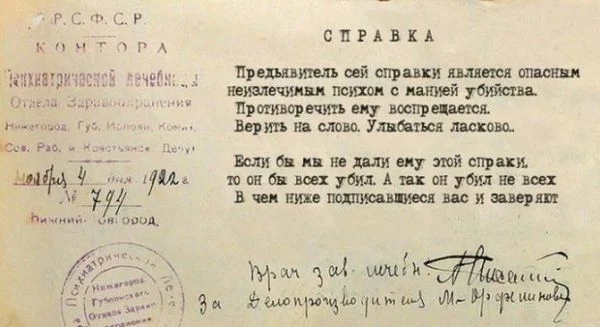 Р. С. Ф. С. Р.
КОНТОРА
Психиатрической лечебницы
Отдела Здравоохранения
Нижегород. Губ. Исполн. Комит.
Сов. Раб. и Крестьянск. Депут.
Ноября 4 дня 1922 г.
№ 794
Нижний-Новгород.
СПРАВКА
Предьявитель сей справки является опасным
неизлечимым психом с манией убийства.
Противоречить ему воспрещается.
Верить на слово. Улыбаться ласково..
Если бы мы не дали ему этой спраки,
то он бы всех убил. А так он убил не всех
В чем ниже подписавшиеся вас и заверяют
Врач зав. лечебн.
За Делопроизводителя
Психиатрическая Лече
Нижегород.
Губернского
Отдела Здраво-
охранения